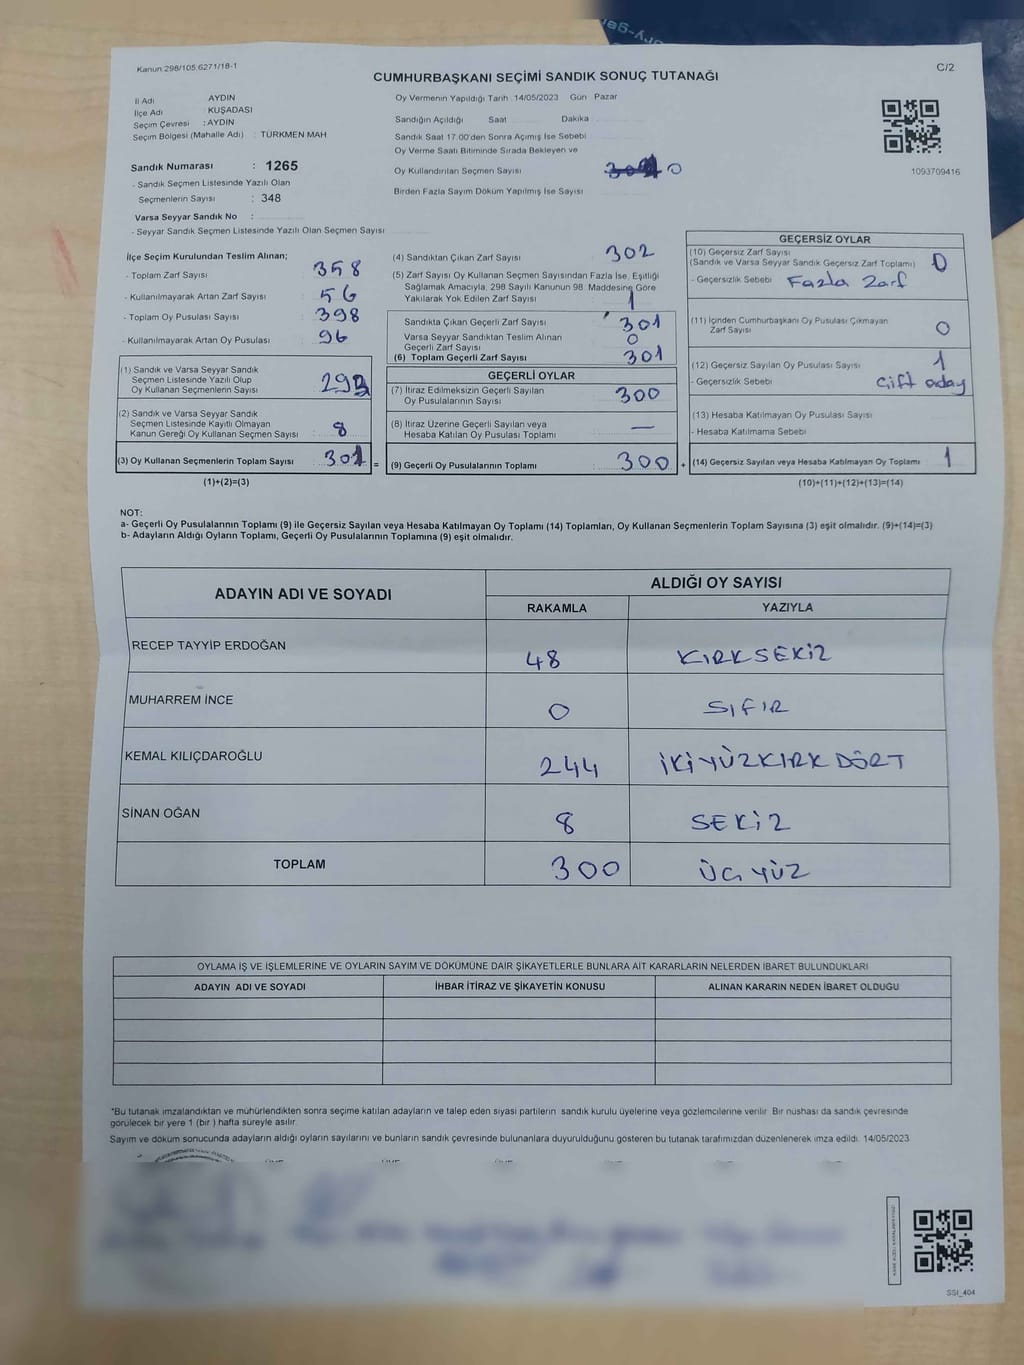 Kanun:298/105,6271/18-1
C/2
CUMHURBAŞKANI SEÇİMİ SANDIK SONUÇ TUTANAĞI
İl Adı AYDIN
İlçe Adı : KUŞADASI
Seçim Çevresi : AYDIN
Seçim Bölgesi (Mahalle Adı) : TÜRKMEN MAH
Sandık Numarası : 1265
- Sandık Seçmen Listesinde Yazılı Olan
Seçmenlerin Sayısı : 348
Varsa Seyyar Sandık No :
- Seyyar Sandık Seçmen Listesinde Yazılı Olan Seçmen Sayısı
Oy Vermenin Yapıldığı Tarih :14/05/2023 Gün Pazar
Sandığın Açıldığı Saat Dakika
Sandık Saat 17:00'den Sonra Açımış İse Sebebi
Oy Verme Saati Bitiminde Sırada Bekleyen ve
Oy Kullandırılan Seçmen Sayısı 0
Birden Fazla Sayım Döküm Yapılmış İse Sayısı
1093709416
İlçe Seçim Kurulundan Teslim Alınan;
- Toplam Zarf Sayısı : 358
- Kullanılmayarak Artan Zarf Sayısı : 56
- Toplam Oy Pusulası Sayısı : 398
- Kullanılmayarak Artan Oy Pusulası : 96
(1) Sandık ve Varsa Seyyar Sandık
Seçmen Listesinde Yazılı Olup
Oy Kullanan Seçmenlerin Sayısı : 293
(2) Sandık ve Varsa Seyyar Sandık
Seçmen Listesinde Kayıtlı Olmayan
Kanun Gereği Oy Kullanan Seçmen Sayısı : 8
(3) Oy Kullanan Seçmenlerin Toplam Sayısı : 301 =
(1)+(2)=(3)
(4) Sandıktan Çıkan Zarf Sayısı : 302
(5) Zarf Sayısı Oy Kullanan Seçmen Sayısından Fazla İse, Eşitliği
Sağlamak Amacıyla, 298 Sayılı Kanunun 98. Maddesine Göre
Yakılarak Yok Edilen Zarf Sayısı : 1
Sandıkta Çıkan Geçerli Zarf Sayısı : 301
Varsa Seyyar Sandıktan Teslim Alınan
Geçerli Zarf Sayısı : 0
(6) Toplam Geçerli Zarf Sayısı : 301
GEÇERLİ OYLAR
(7) İtiraz Edilmeksizin Geçerli Sayılan
Oy Pusulalarının Sayısı : 300
(8) İtiraz Üzerine Geçerli Sayılan veya
Hesaba Katılan Oy Pusulası Toplamı : —
(9) Geçerli Oy Pusulalarının Toplamı : 300 +
GEÇERSİZ OYLAR
(10) Geçersiz Zarf Sayısı
(Sandık ve Varsa Seyyar Sandık Geçersiz Zarf Toplamı) : 0
- Geçersizlik Sebebi : Fazla Zarf
(11) İçinden Cumhurbaşkanı Oy Pusulası Çıkmayan
Zarf Sayısı : 0
(12) Geçersiz Sayılan Oy Pusulası Sayısı : 1
- Geçersizlik Sebebi : Çift aday
(13) Hesaba Katılmayan Oy Pusulası Sayısı
- Hesaba Katılmama Sebebi
(14) Geçersiz Sayılan veya Hesaba Katılmayan Oy Toplamı : 1
(10)+(11)+(12)+(13)=(14)
NOT:
a- Geçerli Oy Pusulalarının Toplamı (9) ile Geçersiz Sayılan veya Hesaba Katılmayan Oy Toplamı (14) Toplamları, Oy Kullanan Seçmenlerin Toplam Sayısına (3) eşit olmalıdır. (9)+(14)=(3)
b- Adayların Aldığı Oyların Toplamı, Geçerli Oy Pusulalarının Toplamına (9) eşit olmalıdır.
ADAYIN ADI VE SOYADI ALDIĞI OY SAYISI
RAKAMLA YAZIYLA
RECEP TAYYİP ERDOĞAN 48 KIRKSEKİZ
MUHARREM İNCE 0 SIFIR
KEMAL KILIÇDAROĞLU 244 İKİYÜZKIRKDÖRT
SİNAN OĞAN 8 SEKİZ
TOPLAM 300 ÜÇYÜZ
OYLAMA İŞ VE İŞLEMLERİNE VE OYLARIN SAYIM VE DÖKÜMÜNE DAİR ŞİKAYETLERLE BUNLARA AİT KARARLARIN NELERDEN İBARET BULUNDUKLARI
ADAYIN ADI VE SOYADI İHBAR İTİRAZ VE ŞİKAYETİN KONUSU ALINAN KARARIN NEDEN İBARET OLDUĞU
*Bu tutanak imzalandıktan ve mühürlendikten sonra seçime katılan adayların ve talep eden siyasi partilerin sandık kurulu üyelerine veya gözlemcilerine verilir. Bir nüshası da sandık çevresinde
görülecek bir yere 1 (bir ) hafta süreyle asılır.
Sayım ve döküm sonucunda adayların aldığı oyların sayılarını ve bunların sandık çevresinde bulunanlara duyurulduğunu gösteren bu tutanak tarafımızdan düzenlenerek imza edildi. 14/05/2023
SSI_404